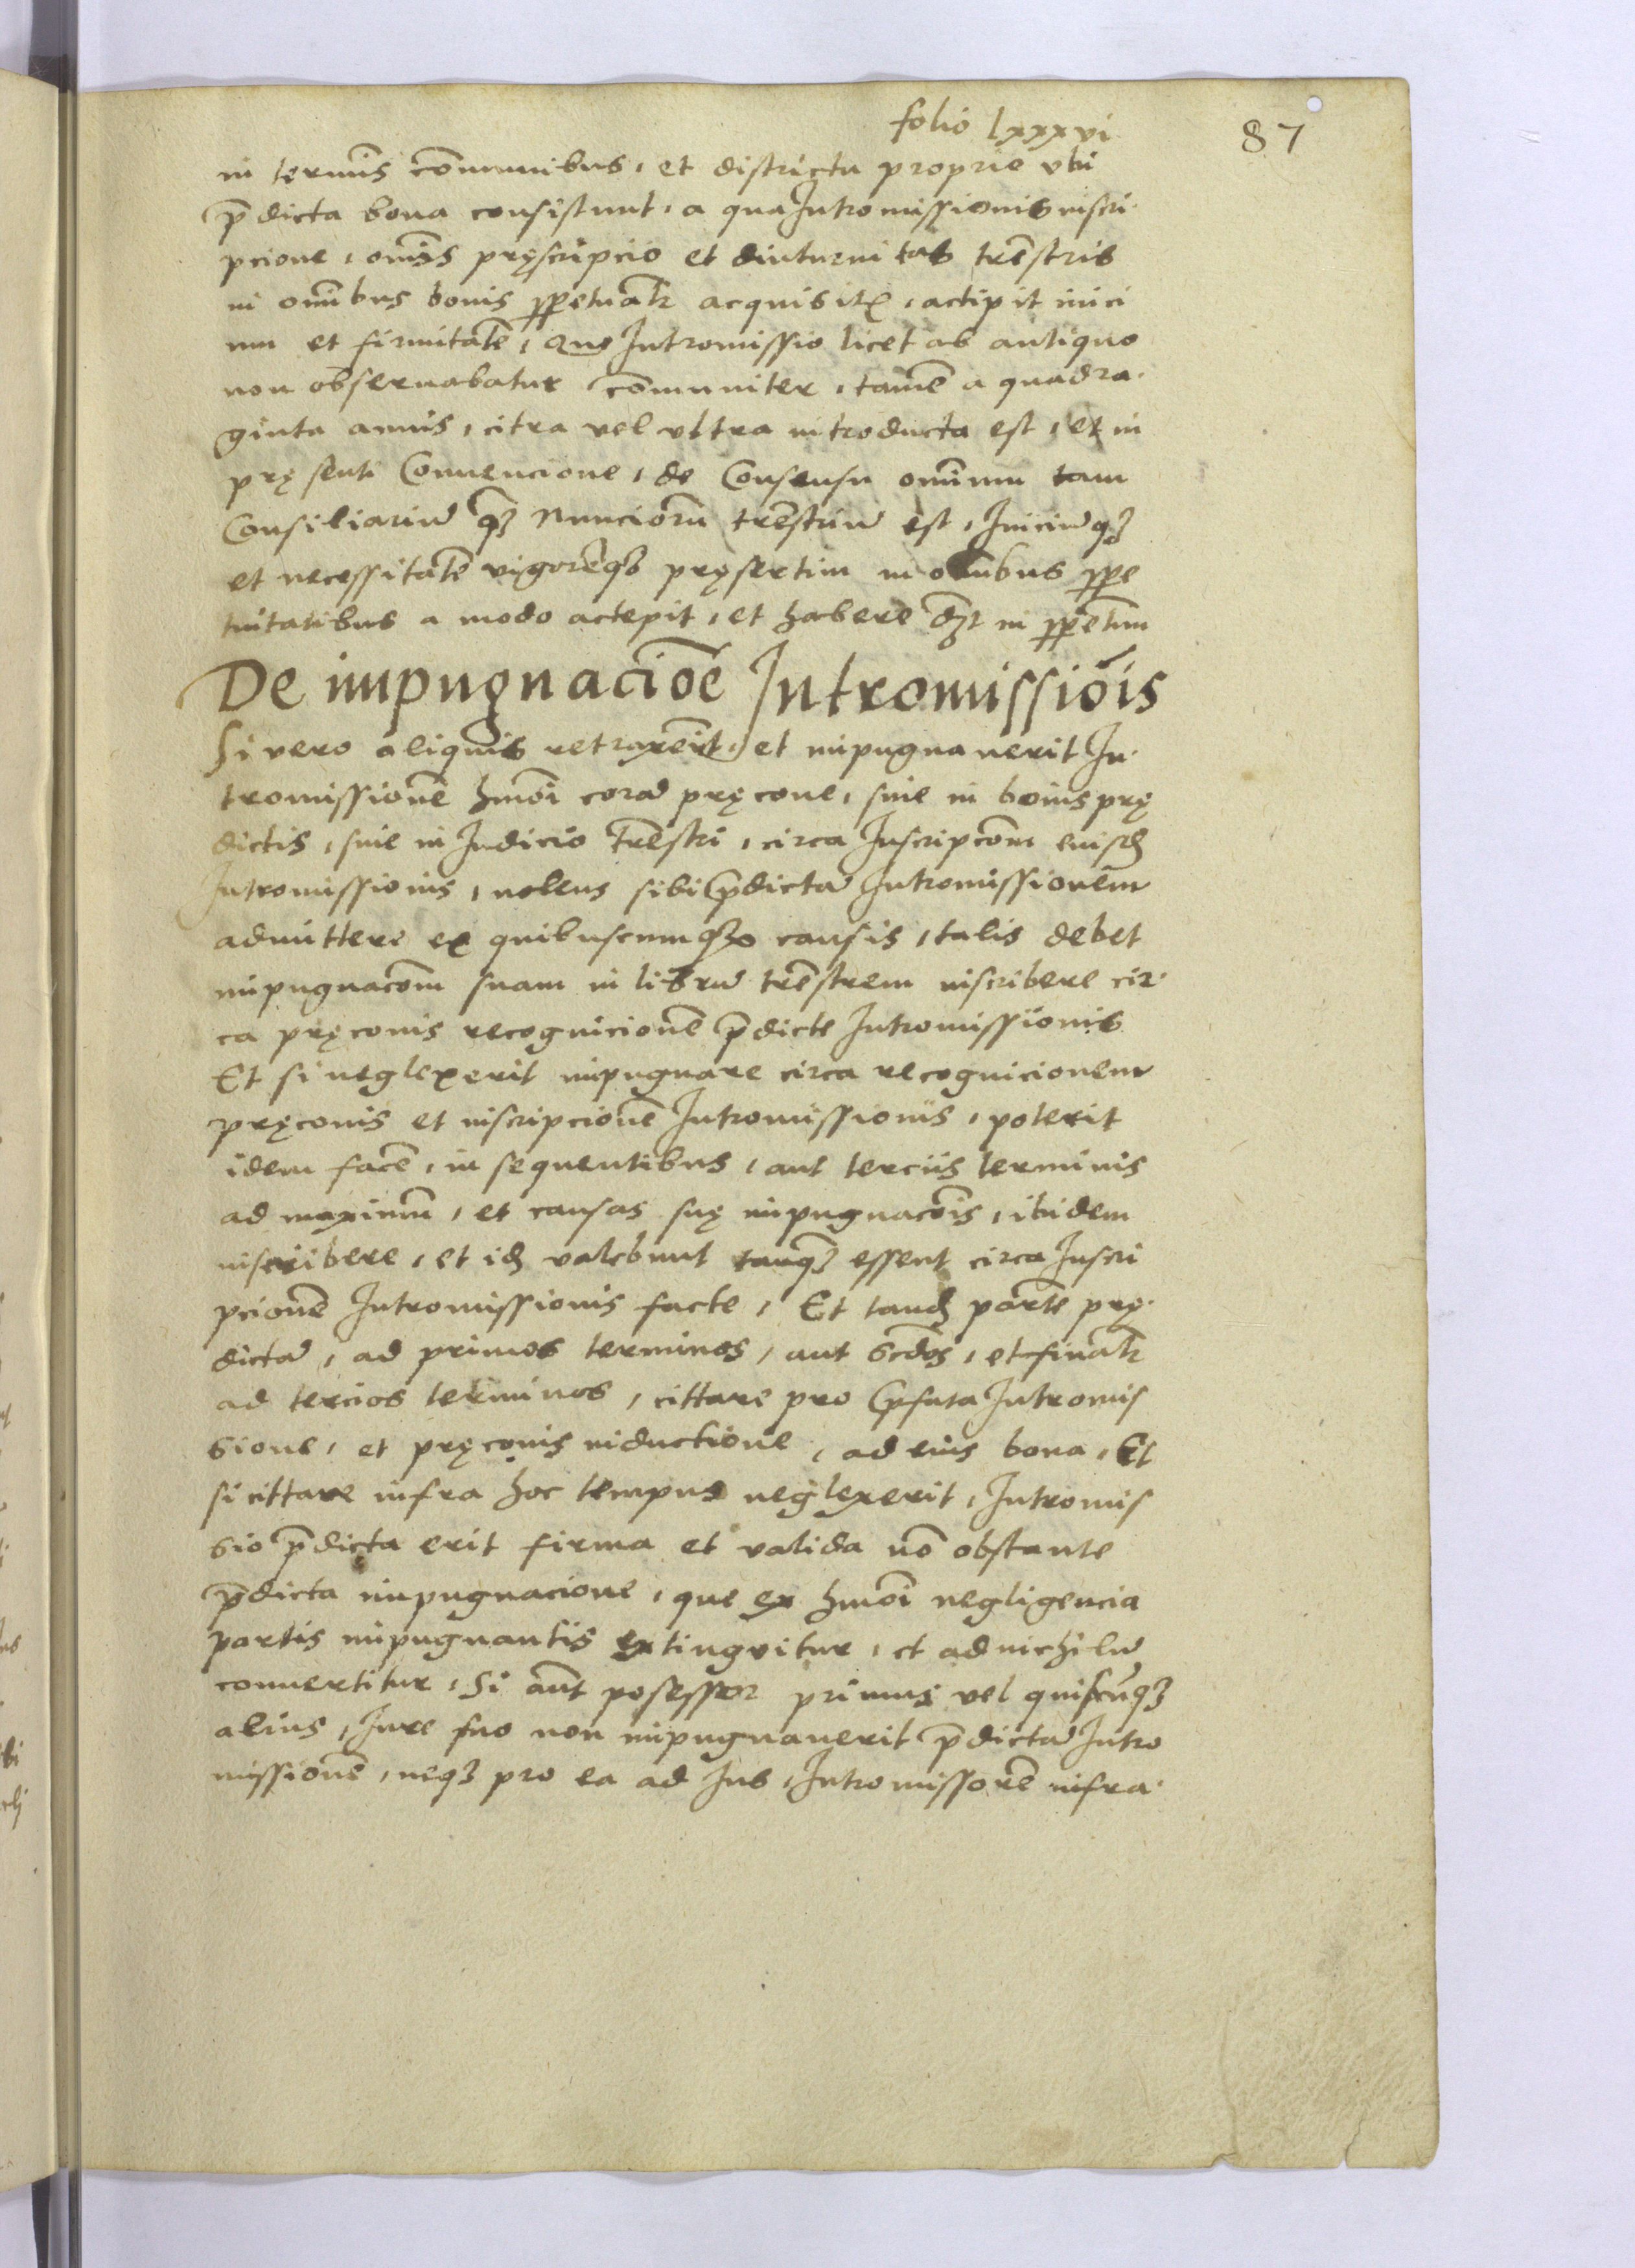 folio lxxxvi
87
in termīs cōmunibus, et districtu proprie vbi
p̄dicta bona consistunt, a qua Intromissionis inscri-
pcione, omīs pręscripcio et diuturnitas trēstris
in omībus bonis ꝑpetualr̄ acquisitꝭ, accipit inici
um et firmitatē, Que Intromissio licet ab antiquo
non obseruabatur cōmuniter, tamē a quadra-
ginta annis, citra vel vltra introducta est, et in
pręsenti Conuencione, de Consensu omnium tam
Consiliariū q̄ꝫ Nuncioru trēstriū est, Iniciūqꝫ
et necessitatē vigorēqꝫ pręsertim in omībus ꝑpe
tuitatibus a modo accepit, et habere dꝫt in ꝑpetuū
De impugnaciōe Intromissiōis
Si vero aliquis retraxerit, et impugnauerit In-
tromissionē hmōi corā pręcone, siue in bonis prę
dictis, siue in Iudicio trēstri, circa Inscripcōm eiusd
Intromissionis, nolens sibi p̄dictā Intromissionem
admittere ex quibuscumqꝫ causis, talis debet
impugnacōm suam in librū trēstrem inscribere cir-
ca pręconis recognicionē p̄dicte Intromissionis
Et si neglexerit impugnare circa recognicionem
pręconis et inscripcionē Intromissionis, poterit
idem facē, in sequentibus, aut terciis terminis
ad maximū, et causas suę impugnacōis, ibidem
inscribere, et id valebunt tanqꝫ essent circa Inscri
pcionē Intromissionis facte, Et tand partē prę-
dictā, ad primos terminos, aut scdōs, et finalr̄
ad tercios terminos, cittare pro p̄fata Intromis
sione, et pręconis inductione, ad eius bona, Et
si cittare infra hoc tempus neglexerit, Intromis
sio p̄dicta erit firma et valida nō obstante
p̄dicta impugnacione, que ex hmōi negligencia
partis impugnantis extingvitur, et ad nichilū
conuertitur, Si aūt posessor primus vel quiscūqꝫ
alius, Iure suo non impugnauerit p̄dictā Intro
missionē, neqꝫ pro ea ad Ius, Intromissorē infra-